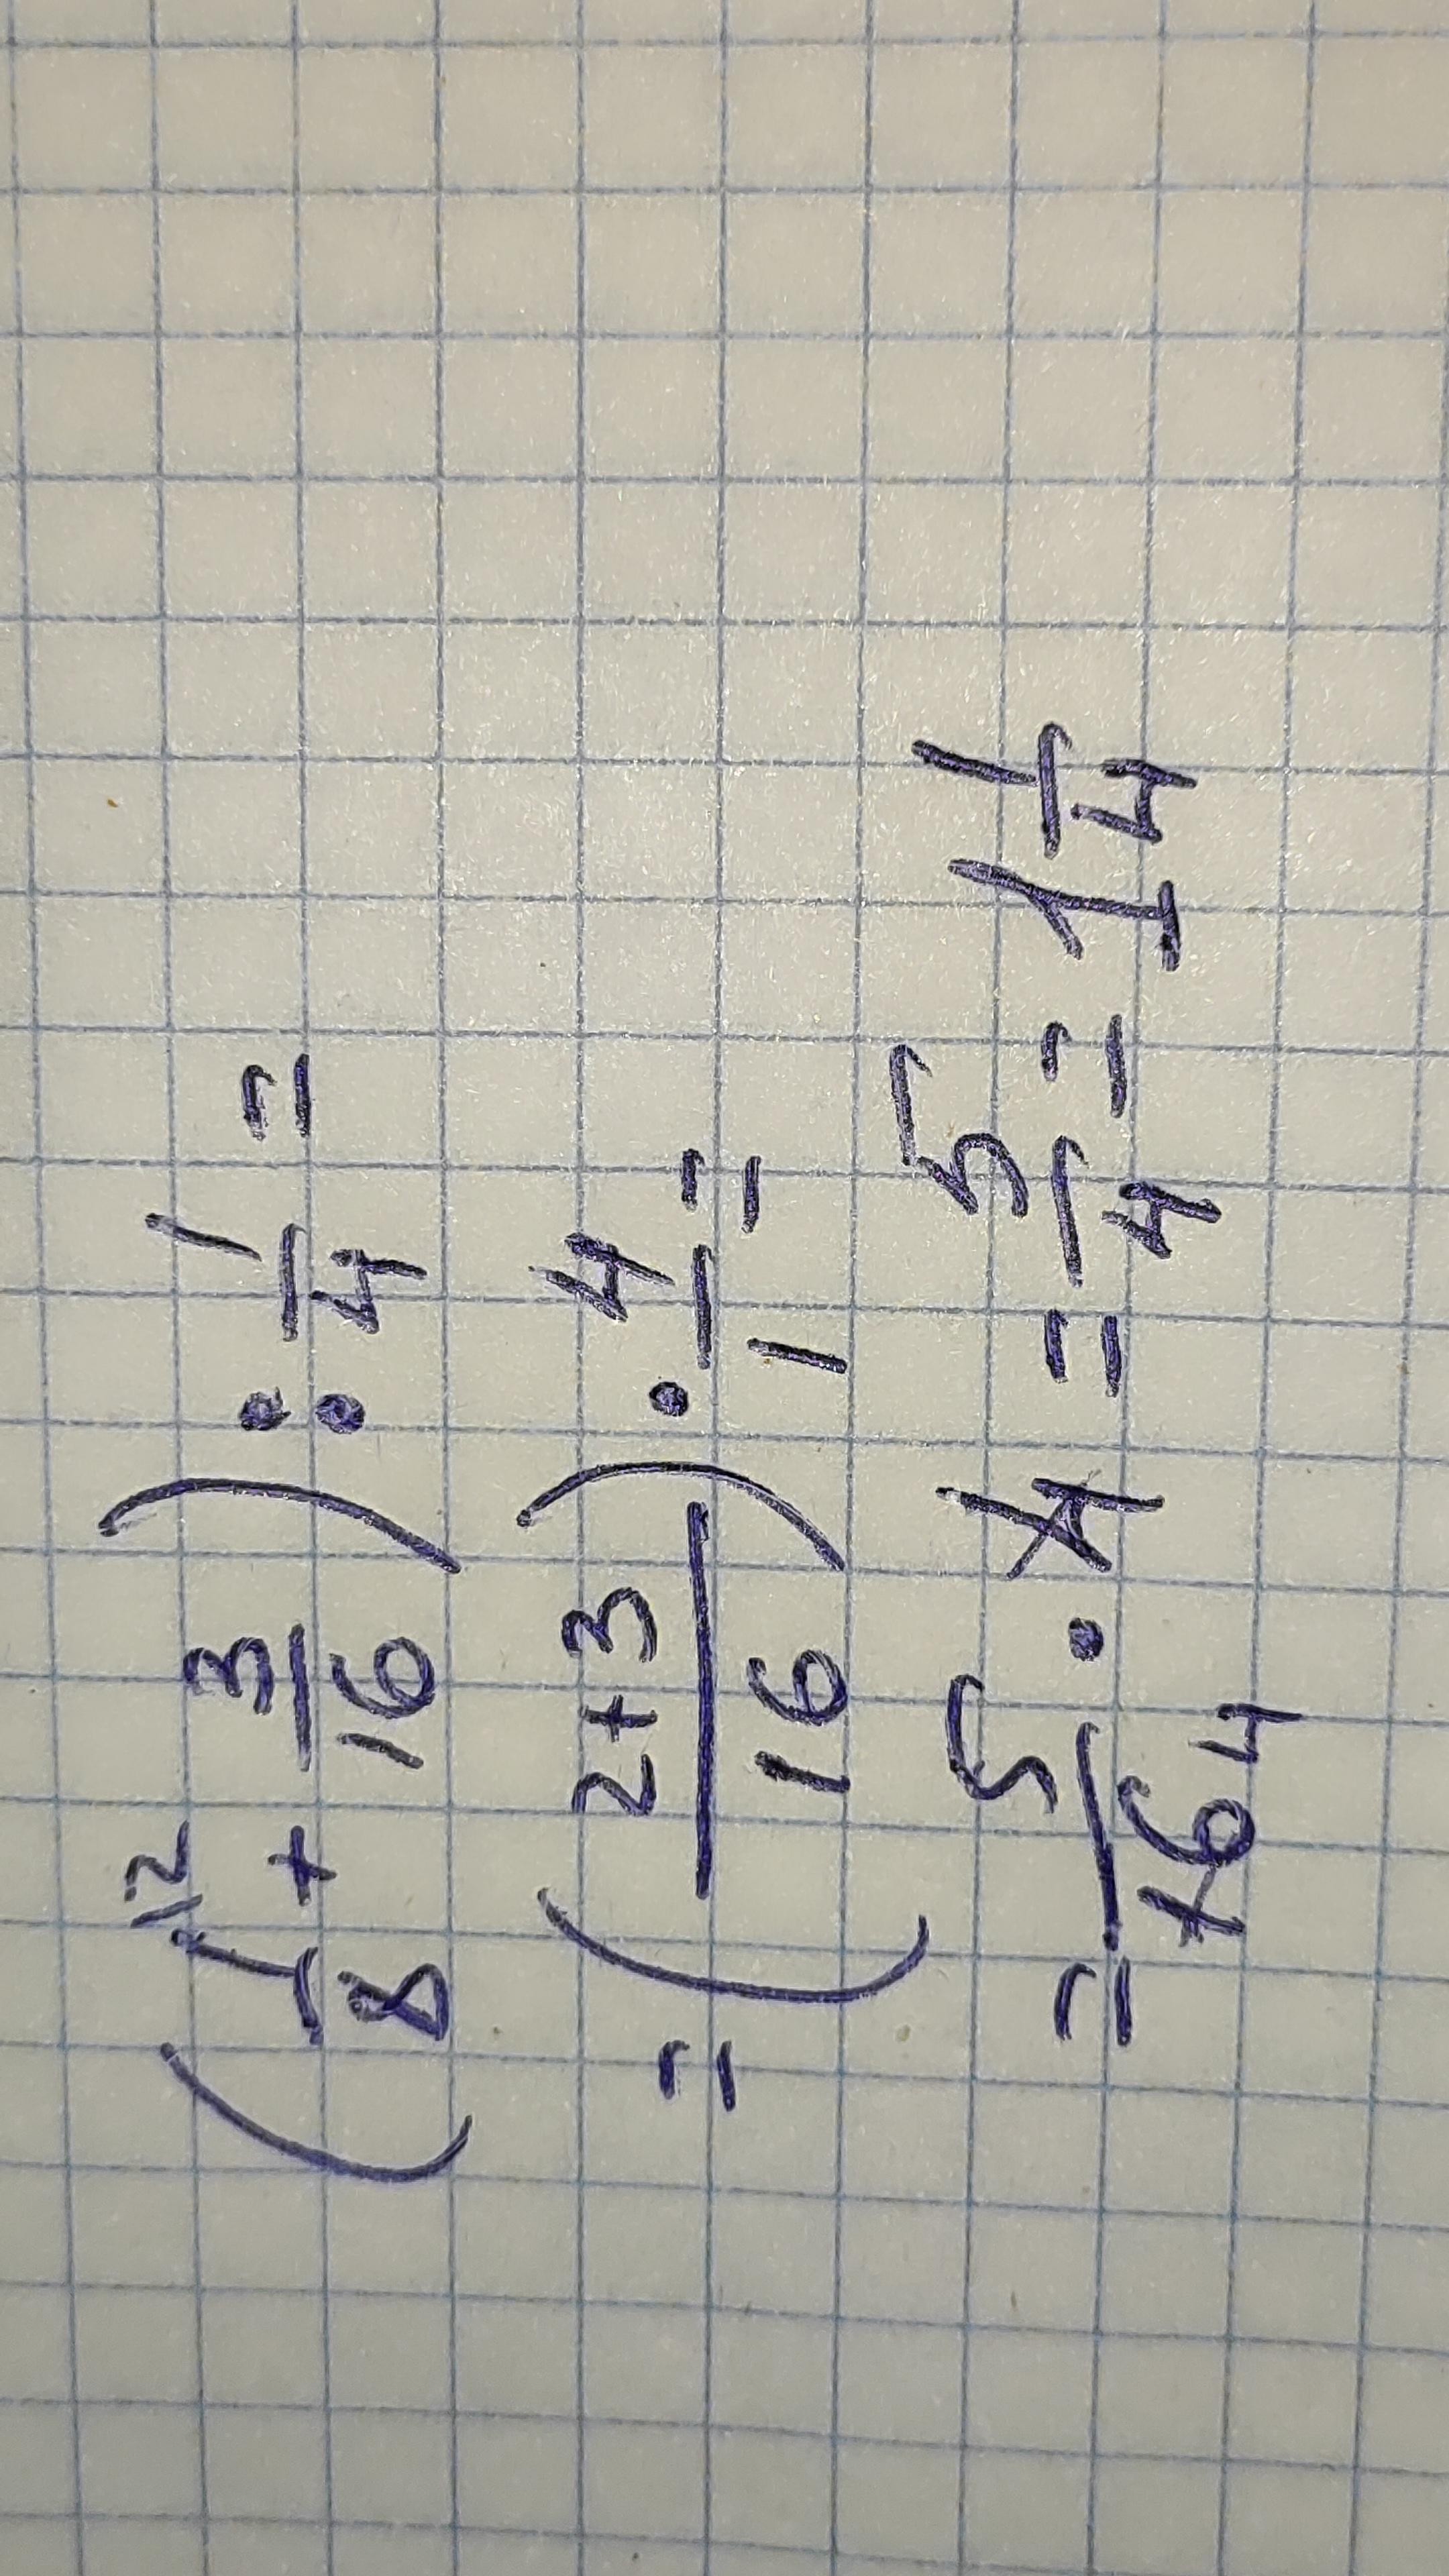 (1/8 ^2 + 3/16) : 1/4 =
= ((2+3)/16) · 4/1 =
= 5/16 4 · 4 = 5/4 = 1 1/4